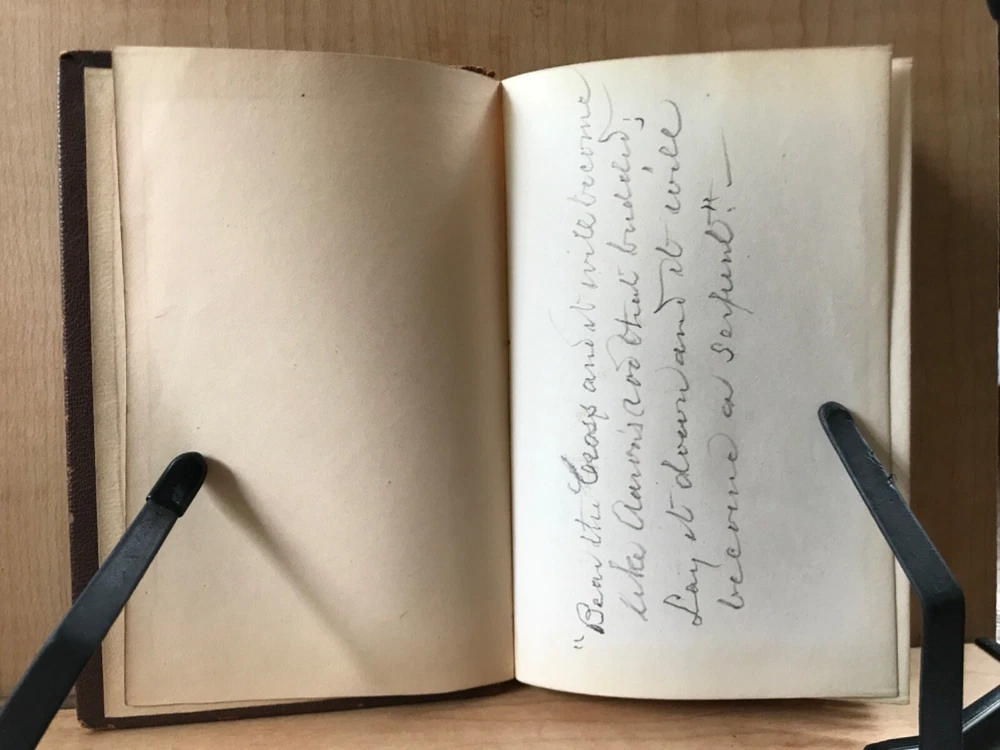 "Bear the Cross and it will become
like Aaron's rod that budded;
Lay it down and it will
become a serpent".—